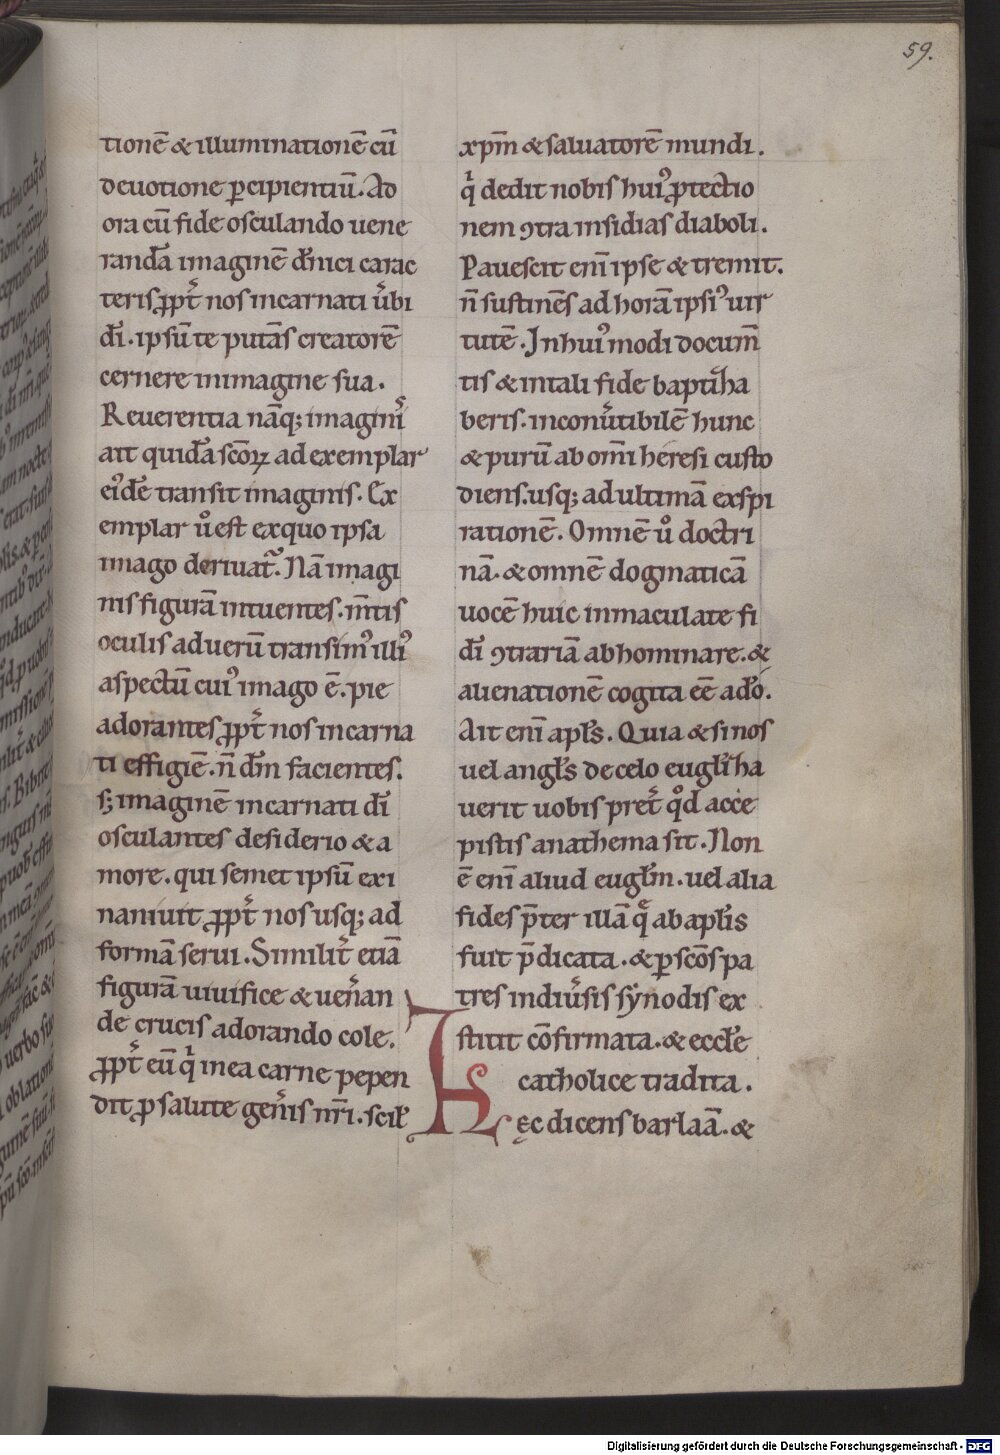 59.
tionē & illuminationē cū
deuotione ꝑcipientiū. Ad
ora cū fide osculando uene
randā imaginē dñici carac
teris ꝓpt̄ nos incarnati u̅bi
dī. ipsū te putās creatorē
cernere in imagine sua.
Reuerentia nāq; imaginis
ait quidā scōꝝ ad exemplar
eiꝰdē transit imaginis. Ex
emplar uͦ est ex quo ipsa
imago deriuat᷑. Nā imagi
nis figurā intuentes. m̄tis
oculis ad uerū transimꝰ illiꝰ
aspectū cuiꝰ imago ē. pie
adorantes ꝓpt̄ nos incarna
ti effigiē. n̄ dm̄ facientes.
s; imaginē incarnati dī
osculantes desiderio & a
more. qui semet ipsū exi
naniuit ꝓpt̄ nos usq; ad
formā serui. Similit̄ etiā
figurā uiuifice & uen̄an
de crucis adorando cole.
ꝓpt̄ eū qͥ in ea carne pepen
dit ꝓ salute gen̄is nr̄i. scil̄
xpm̄ & saluatorē mundi.
qͥ dedit nobis huiꝰ ꝓtectio
nem ꝯtra insidias diaboli.
Pauescit enī ipse & tremit.
n̄ sustinēs ad horā ipsiꝰ uir
tutē. In huiꝰmodi docum̄
tis & in tali fide baptiʒ̄a
beris. inconūtibilē hunc
& purū ab om̄i heresi custo
diens. usq; ad ultimā exspi
rationē. Omnē uͦ doctri
nā. & omnē dogmaticā
uocē huic inmaculate fi
dī ꝯtrariā abhominare. &
alienationē cogita eē a dō.
Ait enī apl̄s. Quia & si nos
uel angl̄s de celo eugl̄iʒa
uerit uobis pret̄ qͦd acce
pistis anathema sit. Non
ē enī aliud eugl̄m. uel alia
fides p̄ter illā q̄ ab apl̄is
fuit p̄dicata. & ꝑ scōs pa
tres in diūsis synodis ex
stitit cōfirmata. & eccl̄e
catholice tradita.
Hęc dicens barlaā. &
Digitalisierung gefördert durch die Deutsche Forschungsgemeinschaft - DFG